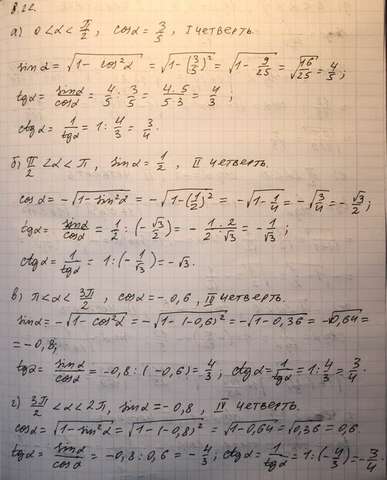 8.22.
а) 0 < α < π/2, cosα = 3/5, I четверть.
sinα = √(1 - cos²α) = √(1 - (3/5)²) = √(1 - 9/25) = √(16/25) = 4/5;
tgα = sinα/cosα = 4/5 : 3/5 = 4·5/5·3 = 4/3;
ctgα = 1/tgα = 1 : 4/3 = 3/4.
б) π/2 < α < π, sinα = 1/2, II четверть.
cosα = -√(1 - sin²α) = -√(1 - (1/2)²) = -√(1 - 1/4) = -√(3/4) = -√3/2;
tgα = sinα/cosα = 1/2 : (-√3/2) = - 1·2/2·√3 = - 1/√3;
ctgα = 1/tgα = 1 : (- 1/√3) = -√3.
в) π < α < 3π/2, cosα = -0,6, III четверть.
sinα = -√(1 - cos²α) = -√(1 - (-0,6)²) = -√(1 - 0,36) = -√0,64 =
= -0,8;
tgα = sinα/cosα = -0,8 : (-0,6) = 4/3; ctgα = 1/tgα = 1 : 4/3 = 3/4.
г) 3π/2 < α < 2π, sinα = -0,8, IV четверть.
cosα = √(1 - sin²α) = √(1 - (-0,8)²) = √(1 - 0,64) = √0,36 = 0,6.
tgα = sinα/cosα = -0,8 : 0,6 = - 4/3; ctgα = 1/tgα = 1 : (- 4/3) = - 3/4.